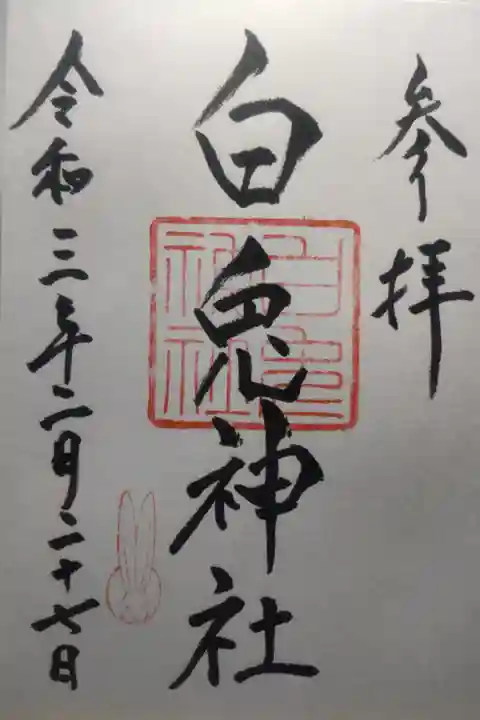 参拝
白兎神社
白兎神社
令和三年二月二十七日